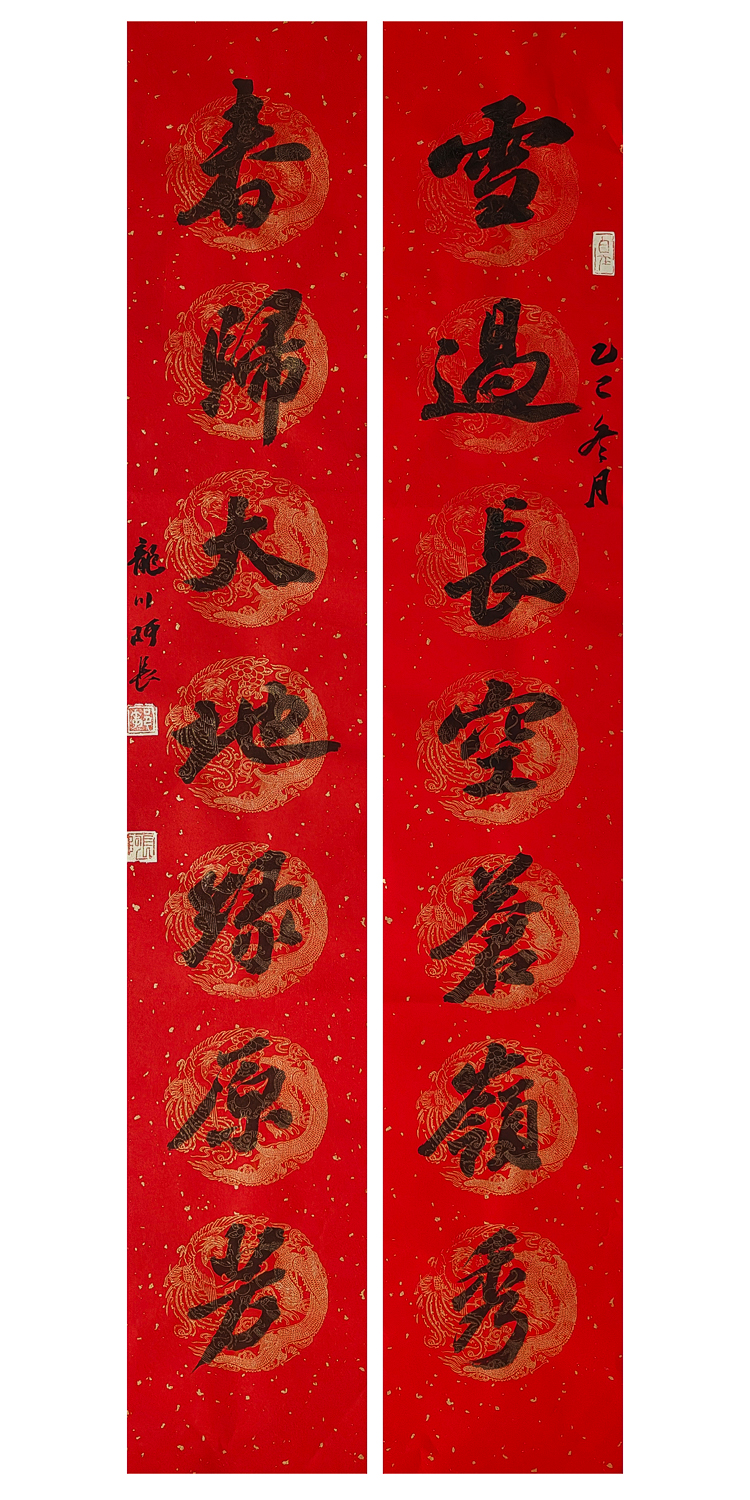 雪過長空蒼嶺秀
乙巳冬月
自作
春歸大地綠原芳
龍川阿長